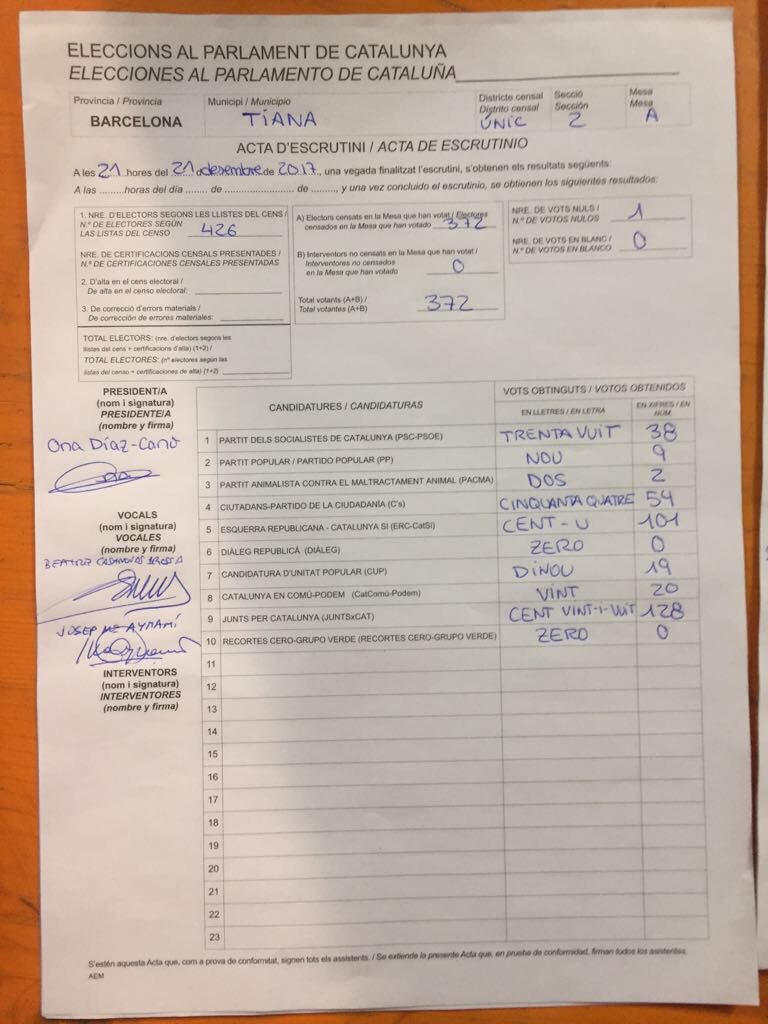 ELECCIONS AL PARLAMENT DE CATALUNYA
ELECCIONES AL PARLAMENTO DE CATALUÑA
Provincia / Provincia
BARCELONA
Municipi / Municipio
TIANA
Districte censal
Distrito censal
ÚNIC
Secció
Sección
2
Mesa
Mesa
A
ACTA D'ESCRUTINI / ACTA DE ESCRUTINIO
A les 21 hores del 21 desembre de 2017, una vegada finalitzat l'escrutini, s'obtenen els resultats següents:
A las .........horas del día ....... de ...................... de ......., y una vez concluido el escrutinio, se obtienen los siguientes resultados:
1. NRE. D'ELECTORS SEGONS LES LLISTES DEL CENS /
N.º DE ELECTORES SEGÚN
LAS LISTAS DEL CENSO 426
NRE. DE CERTIFICACIONS CENSALS PRESENTADES /
N.º DE CERTIFICACIONES CENSALES PRESENTADAS
2. D'alta en el cens electoral /
De alta en el censo electoral:
3. De correcció d'errors materials /
De corrección de errores materiales:
TOTAL ELECTORS: (nre. d'electors segons les
llistes del cens + certificacions d'alta) (1+2) /
TOTAL ELECTORES: (nº electores según las
listas del censo + certificaciones de alta) (1+2)
A) Electors censats en la Mesa que han votat / Electores
censados en la Mesa que han votado 372
B) Interventors no censats en la Mesa que han votat /
Interventores no censados
en la Mesa que han votado 0
Total votants (A+B) /
Total votantes (A+B) 372
NRE. DE VOTS NULS /
N.º DE VOTOS NULOS 1
NRE. DE VOTS EN BLANC /
N.º DE VOTOS EN BLANCO 0
PRESIDENT/A
(nom i signatura)
PRESIDENTE/A
(nombre y firma)
Ona Díaz-Cano
VOCALS
(nom i signatura)
VOCALES
(nombre y firma)
BEATRIZ
JOSEP
INTERVENTORS
(nom i signatura)
INTERVENTORES
(nombre y firma)
CANDIDATURES / CANDIDATURAS
VOTS OBTINGUTS / VOTOS OBTENIDOS
EN LLETRES / EN LETRA
EN XIFRES / EN NÚM.
1 PARTIT DELS SOCIALISTES DE CATALUNYA (PSC-PSOE) TRENTA VUIT 38
2 PARTIT POPULAR / PARTIDO POPULAR (PP) NOU 9
3 PARTIT ANIMALISTA CONTRA EL MALTRACTAMENT ANIMAL (PACMA) DOS 2
4 CIUTADANS-PARTIDO DE LA CIUDADANÍA (C's) CINQUANTA QUATRE 54
5 ESQUERRA REPUBLICANA - CATALUNYA SI (ERC-CatSI) CENT-U 101
6 DIÀLEG REPUBLICÀ (DIÀLEG) ZERO 0
7 CANDIDATURA D'UNITAT POPULAR (CUP) DINOU 19
8 CATALUNYA EN COMÚ-PODEM (CatComú-Podem) VINT 20
9 JUNTS PER CATALUNYA (JUNTSxCAT) CENT VINT-I-VUIT 128
10 RECORTES CERO-GRUPO VERDE (RECORTES CERO-GRUPO VERDE) ZERO 0
11
12
13
14
15
16
17
18
19
20
21
22
23
S'estén aquesta Acta que, com a prova de conformitat, signen tots els assistents. / Se extiende la presente Acta que, en prueba de conformidad, firman todos los asistentes.
AEM